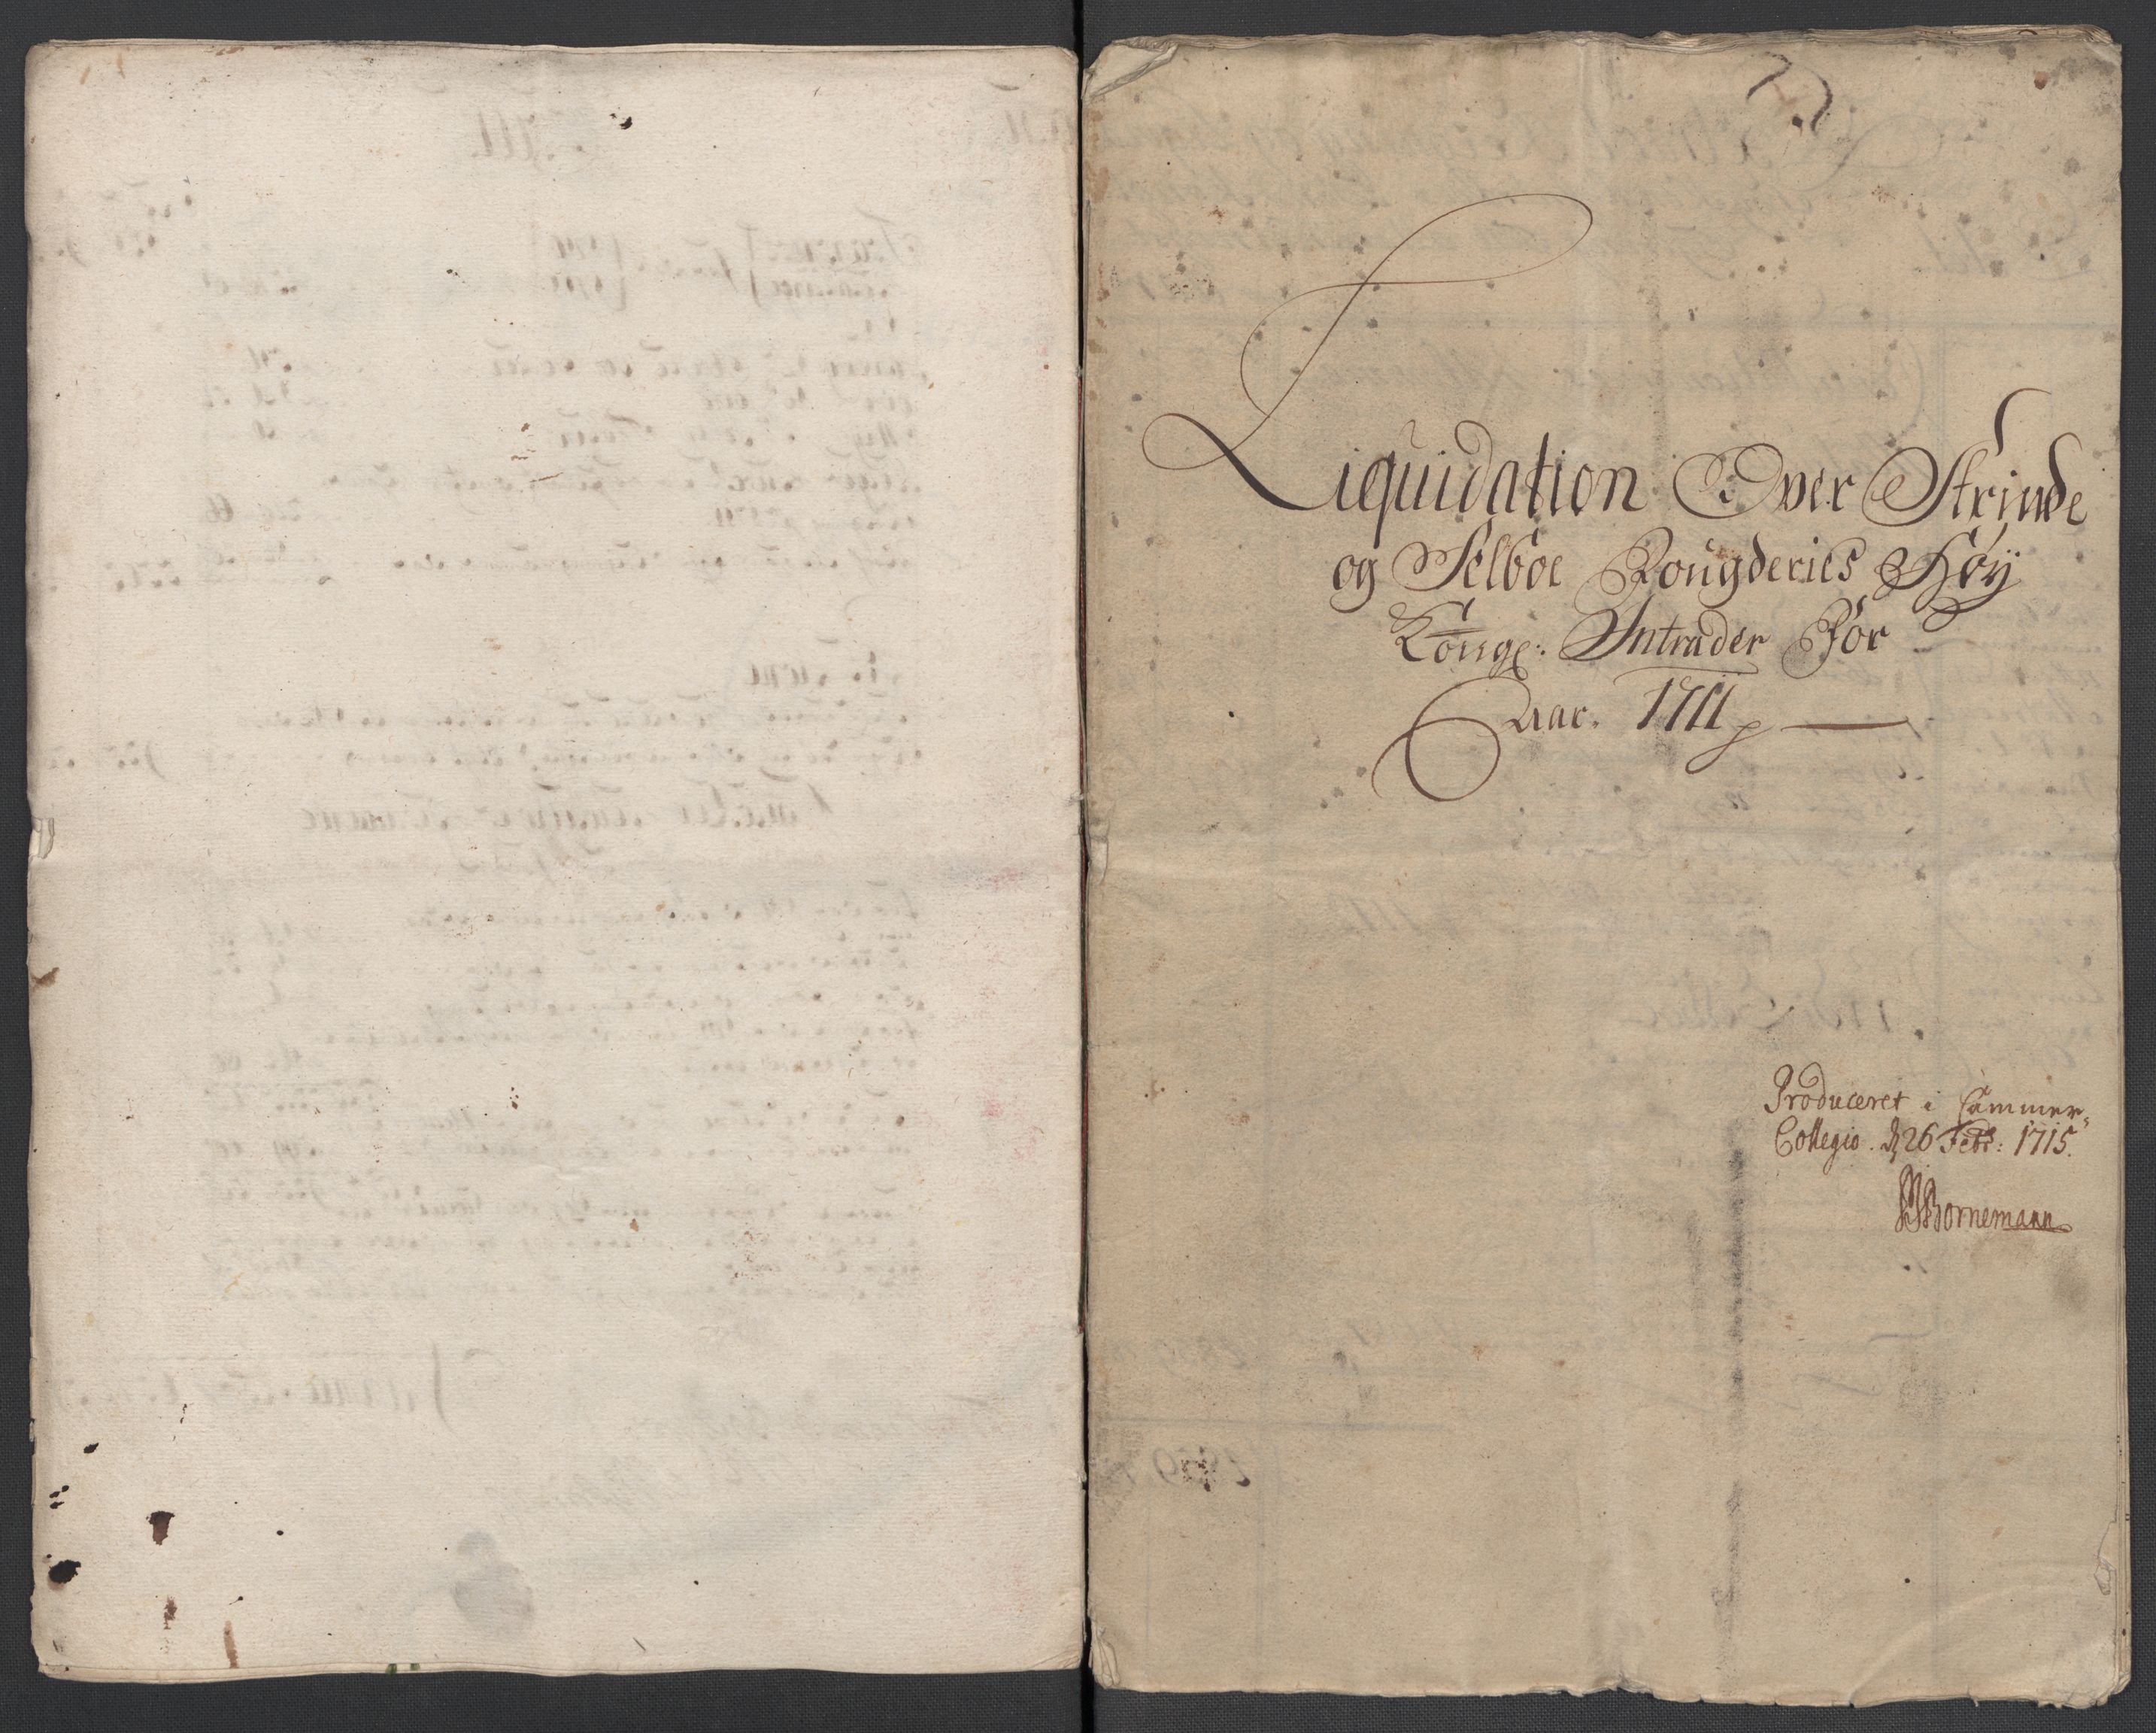 Liquidation Over Strinde
og Selboe Fougderies Høÿ
Kongl: Intrader For
Aar. 1711
Produceret i Cammer-
Collegio. d 26 Febr: 1715.
Bornemann